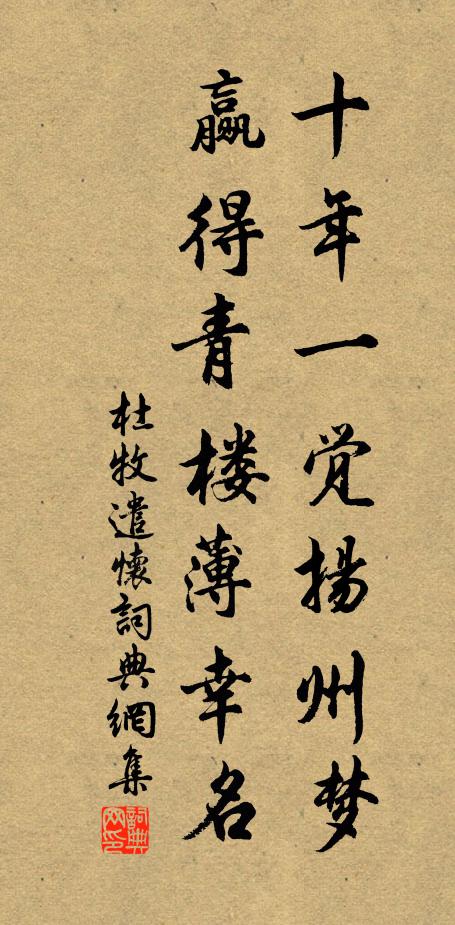 十年一觉揚州梦
赢得青楼薄幸名
杜牧遣懷詞典網集
詞典网印